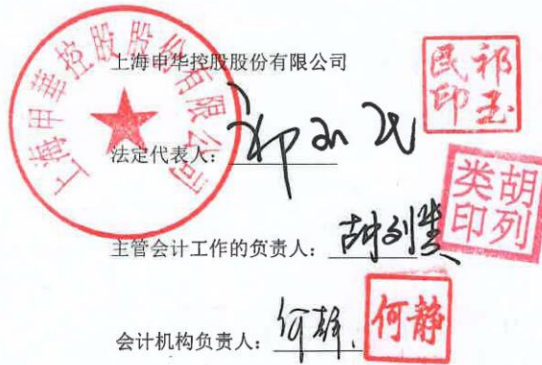 上海申华控股股份有限公司
上海申华控股股份有限公司
祁玉民印
法定代表人：祁玉民
胡列类印
主管会计工作的负责人：胡列类
会计机构负责人：何静
何静